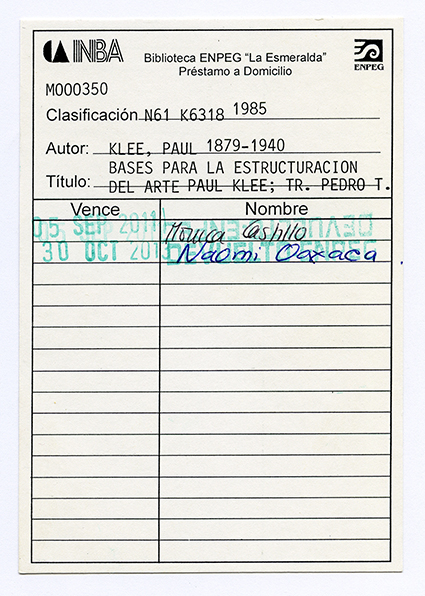 INBA
Biblioteca ENPEG "La Esmeralda"
Préstamo a Domicilio
ENPEG
M000350
Clasificación N61 K6318 1985
Autor: KLEE, PAUL 1879-1940
BASES PARA LA ESTRUCTURACION
Título: DEL ARTE PAUL KLEE; TR. PEDRO T.
Vence Nombre
05 SEP 2011 Monica Castillo DEVUELTO ENPEG
30 OCT 2013 Naomi Oaxaca DEVUELTO ENPEG